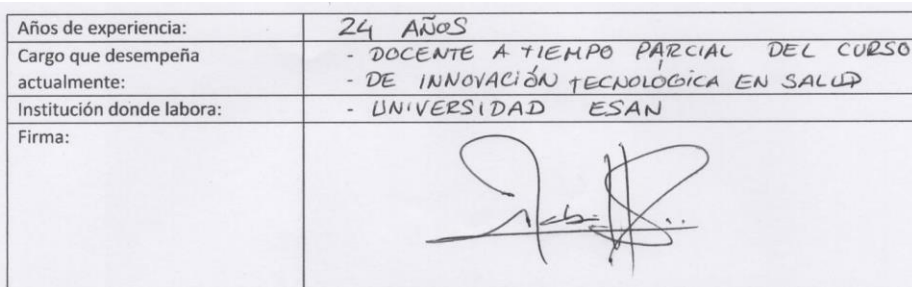 Años de experiencia: 24 AÑOS
Cargo que desempeña - DOCENTE A TIEMPO PARCIAL DEL CURSO
actualmente: - DE INNOVACIÓN TECNOLÓGICA EN SALUD
Institución donde labora: - UNIVERSIDAD ESAN
Firma: